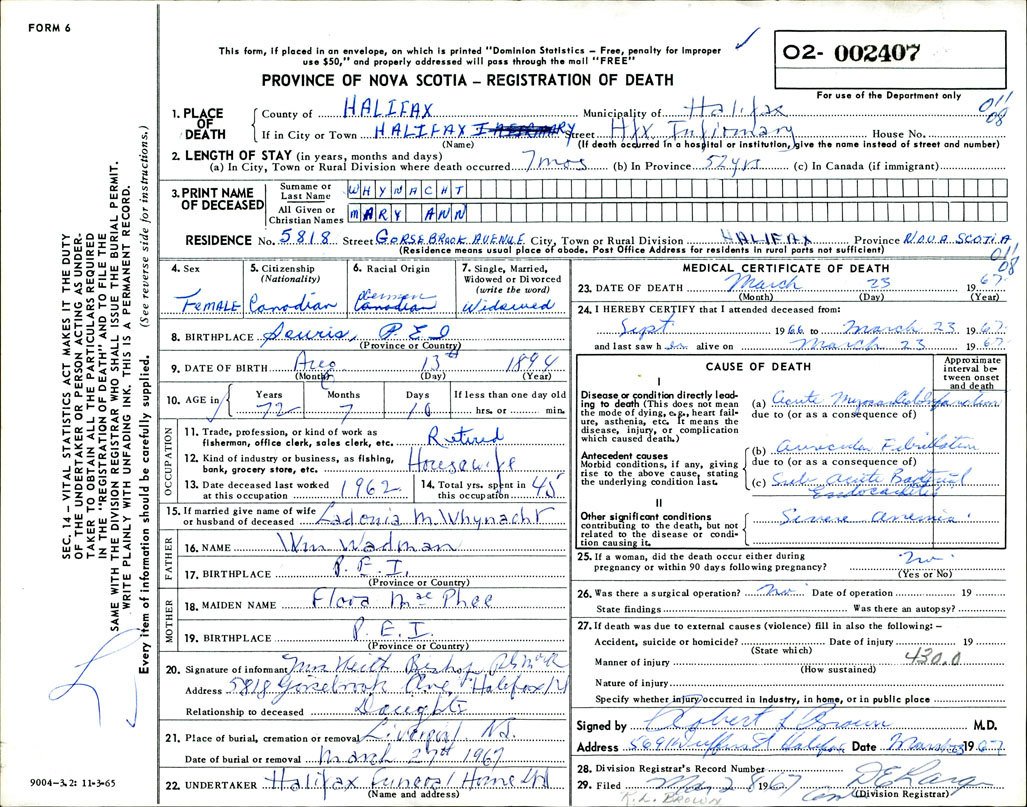 FORM 6
This form, if placed in an envelope, on which is printed "Dominion Statistics – Free, penalty for improper
use $50," and properly addressed will pass through the mail "FREE"
02- 002407
PROVINCE OF NOVA SCOTIA – REGISTRATION OF DEATH
For use of the Department only
011
08
1. PLACE OF DEATH
County of HALIFAX Municipality of Halifax
If in City or Town HALIFAX Street Hfx Infirmary House No.
(Name) (If death occurred in a hospital or institution, give the name instead of street and number)
2. LENGTH OF STAY (in years, months and days)
(a) In City, Town or Rural Division where death occurred 7 mos (b) In Province 52 yrs (c) In Canada (if immigrant)
3. PRINT NAME OF DECEASED
Surname or Last Name WHYNACHT
All Given or Christian Names MARY ANN
RESIDENCE No. 5818 Street GORSEBROOK AVENUE City, Town or Rural Division HALIFAX Province NOVA SCOTIA
(Residence means usual place of abode. Post Office Address for residents in rural parts not sufficient)
011
08
4. Sex FEMALE
5. Citizenship (Nationality) Canadian
6. Racial Origin German Canadian
7. Single, Married, Widowed or Divorced (write the word) Widowed
8. BIRTHPLACE Souris, P.E.I
(Province or Country)
9. DATE OF BIRTH Aug 13th 1894
(Month) (Day) (Year)
10. AGE in Years 72 Months 7 Days 10 If less than one day old hrs. or min.
OCCUPATION
11. Trade, profession, or kind of work as fisherman, office clerk, sales clerk, etc. Retired
12. Kind of industry or business, as fishing, bank, grocery store, etc. Housewife
13. Date deceased last worked at this occupation 1962 14. Total yrs. spent in this occupation 45
15. If married give name of wife or husband of deceased Ladonia M. Whynacht
FATHER
16. NAME Wm Wadman
17. BIRTHPLACE P.E.I.
(Province or Country)
MOTHER
18. MAIDEN NAME Flora MacPhee
19. BIRTHPLACE P.E.I.
(Province or Country)
20. Signature of informant Mrs Keith Bishop
Address 5818 Gorsebrook Ave Halifax
Relationship to deceased Daughter
21. Place of burial, cremation or removal Liverpool N.S.
Date of burial or removal March 27th 1967
22. UNDERTAKER Halifax Funeral Home Ltd
(Name and address)
MEDICAL CERTIFICATE OF DEATH
23. DATE OF DEATH March 23 1967
(Month) (Day) (Year)
24. I HEREBY CERTIFY that I attended deceased from:
Sept 1966 to March 23 1967
and last saw her alive on March 23 1967
CAUSE OF DEATH
Approximate interval between onset and death
I
Disease or condition directly leading to death (This does not mean the mode of dying, e.g., heart failure, asthenia, etc. It means the disease, injury, or complication which caused death.)
(a) Acute Myocardial Infarction
due to (or as a consequence of)
Antecedent causes
Morbid conditions, if any, giving rise to the above cause, stating the underlying condition last.
(b) Auricular Fibrillation
due to (or as a consequence of)
(c) Sub Acute Bacterial Endocarditis
II
Other significant conditions contributing to the death, but not related to the disease or condition causing it.
Severe anemia
25. If a woman, did the death occur either during pregnancy or within 90 days following pregnancy? No
(Yes or No)
26. Was there a surgical operation? No Date of operation 19
State findings Was there an autopsy?
27. If death was due to external causes (violence) fill in also the following: –
Accident, suicide or homicide? Date of injury 19
(State which)
Manner of injury 430.0
(How sustained)
Nature of injury
Specify whether injury occurred in industry, in home, or in public place
Signed by Robert L Brown M.D.
Address 5691 Duffus St Halifax Date March 1967
28. Division Registrar's Record Number
29. Filed Mar 28 1967
(Division Registrar)
R.L. BROWN
SEC. 14 – VITAL STATISTICS ACT MAKES IT THE DUTY
OF THE UNDERTAKER OR PERSON ACTING AS UNDER-
TAKER TO OBTAIN ALL THE PARTICULARS REQUIRED
IN THE "REGISTRATION OF DEATH" AND TO FILE THE
SAME WITH THE DIVISION REGISTRAR WHO SHALL ISSUE THE BURIAL PERMIT.
WRITE PLAINLY WITH UNFADING INK. THIS IS A PERMANENT RECORD.
Every item of information should be carefully supplied. (See reverse side for instructions.)
9004–3.2: 11-3-65